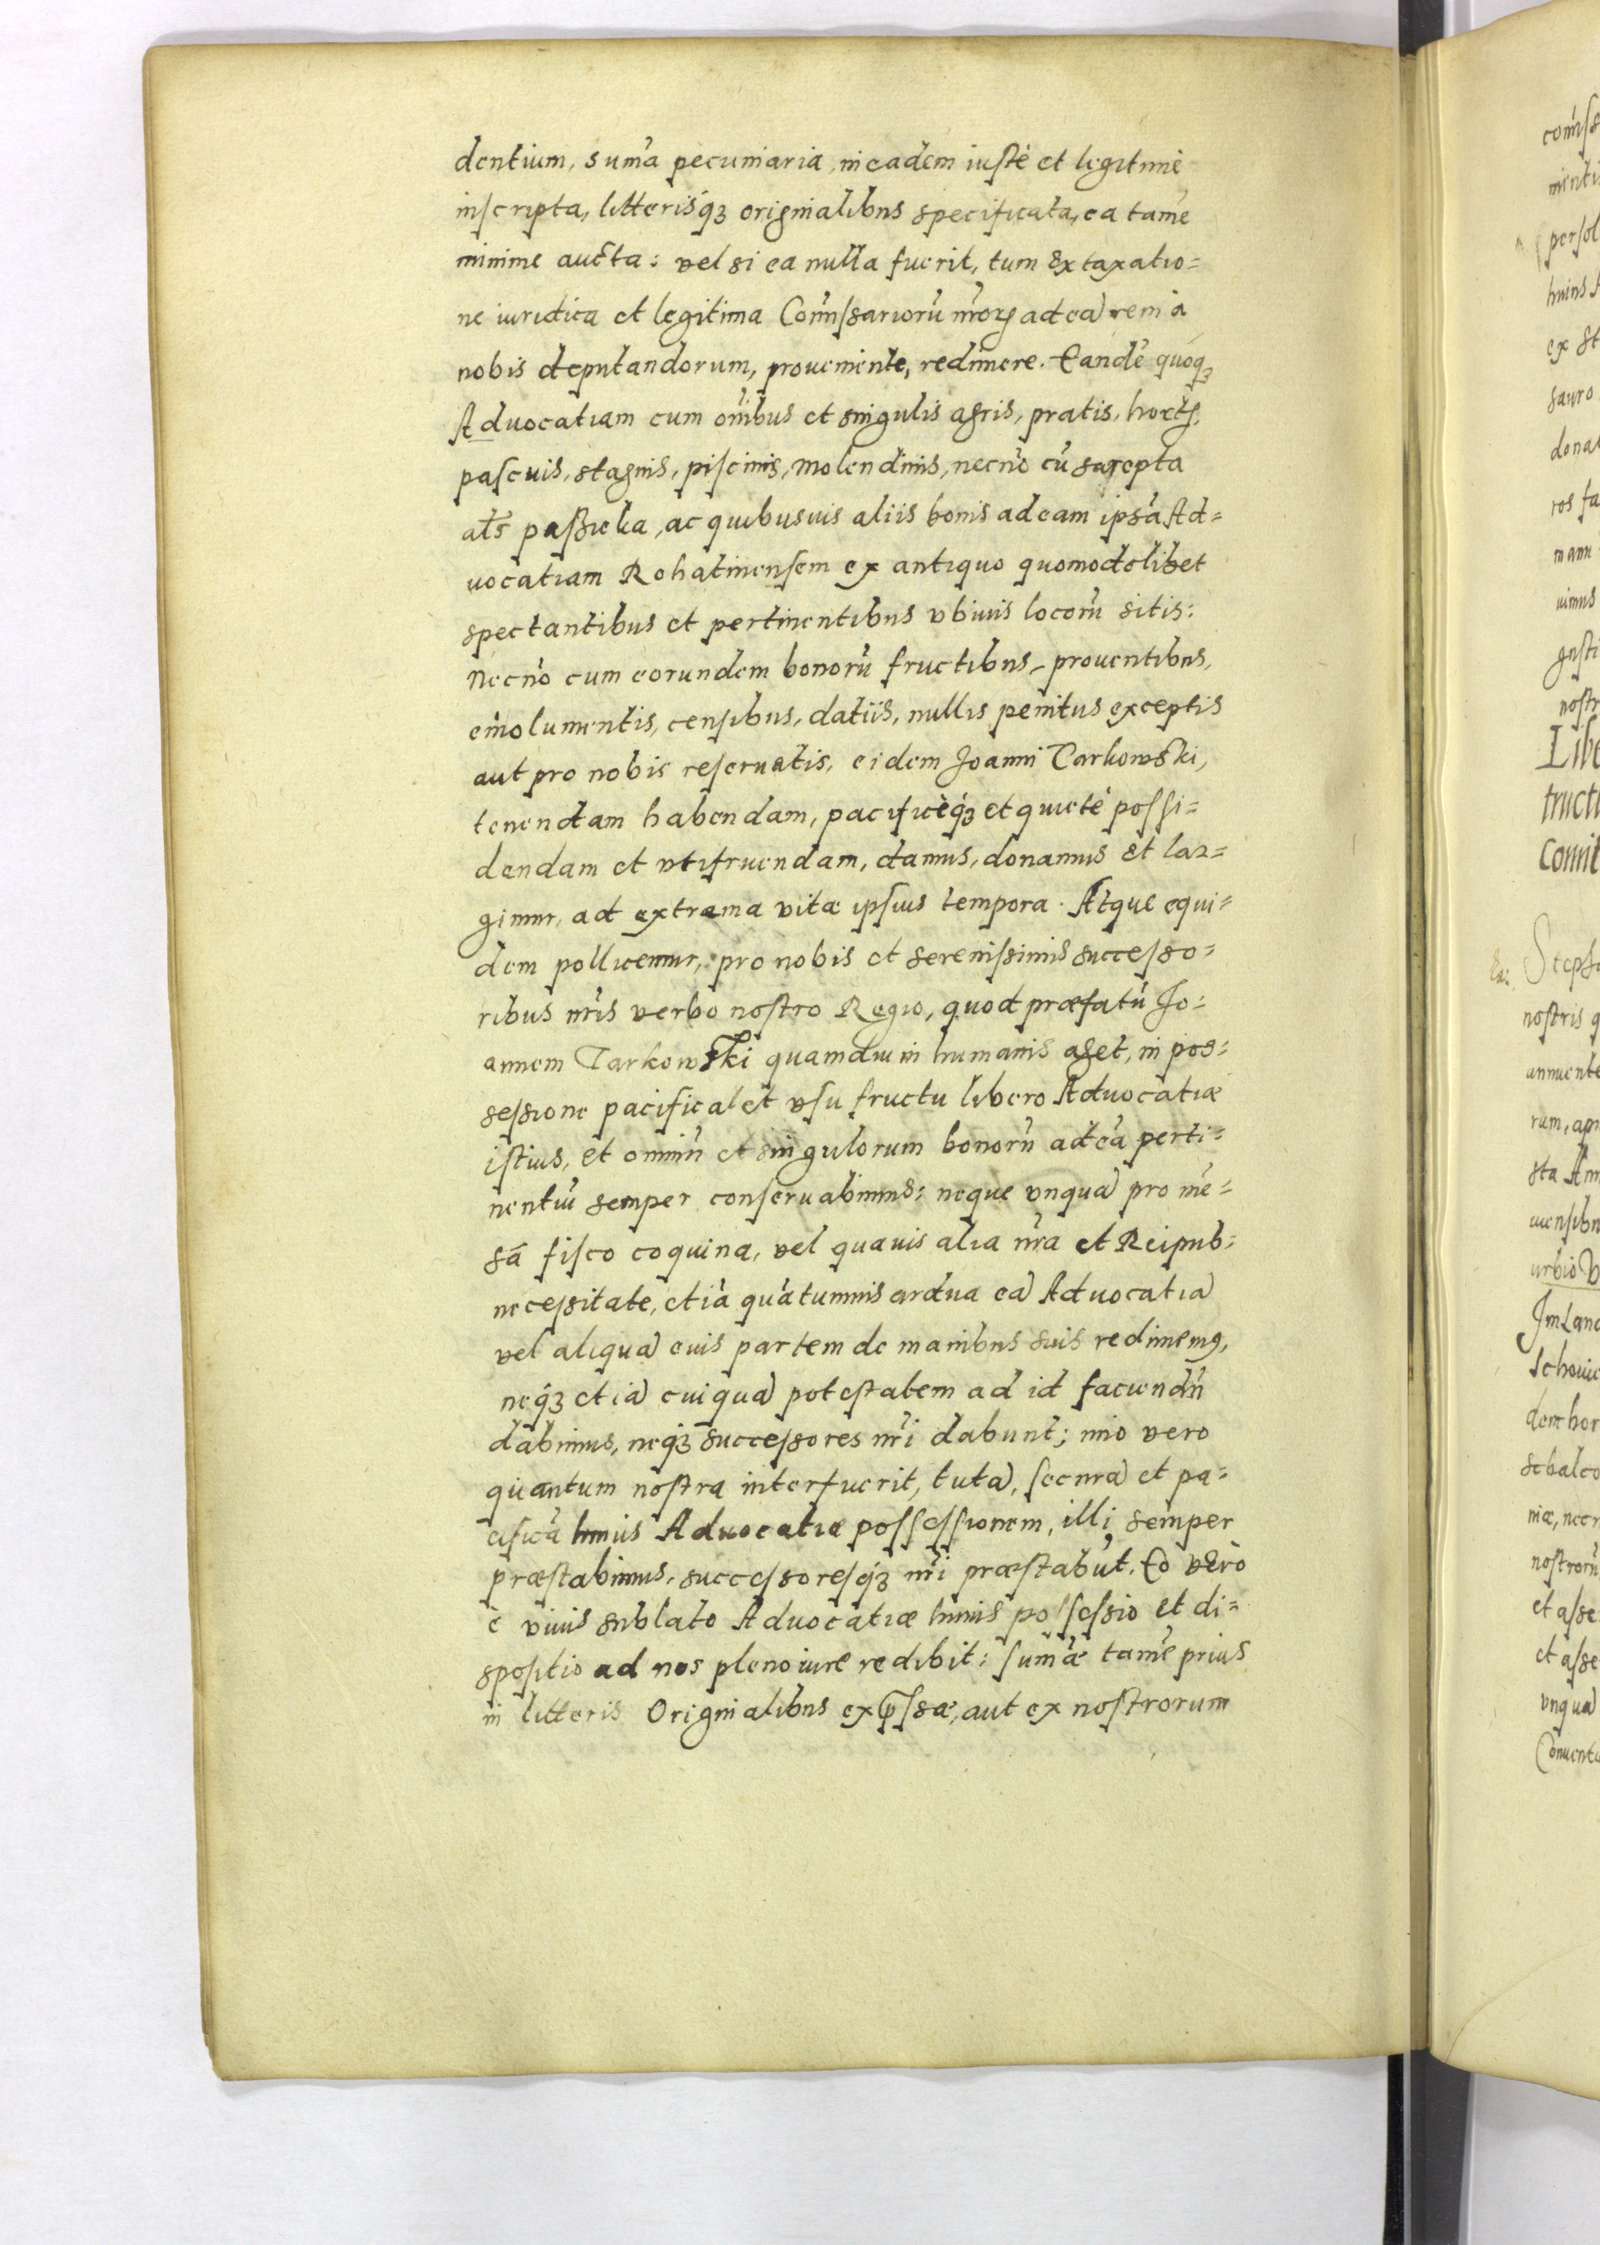 dentium, sum̃a pecuniaria, in eadem iustè et legitimè
inscripta, litterisq́ꝫ originalibus specificata, ea tamẽ
minime aucta: vel si ea nulla fuerit, tum ex taxatio=
ne iuridica et legitima Com̃issariorũ nr̃orꝫ ad eã rem à
nobis deputandorum, proveniente, redimere. Eandẽ quoqꝫ
Advocatiam cum om̃ibus et singulis agris, pratis, hortis,
pascuis, stagnis, piscinis, molendinis, necnõ cũ sarepta
al̃s passieka, ac quibusuis aliis bonis ad eam ipsã Ad=
uocatiam Rohatinensem ex antiquo quomodolibet
spectantibus et pertinentibus vbiuis locorũ sitis:
Necnõ cum eorundem bonorũ fructibus, prouentibus,
emolumentis, censibus, datiis, nullis penitus exceptis
aut pro nobis reseruatis, eidem Joanni Tarkowski,
tenendam habendam, pacificèq́ꝫ et quietè possi=
dendam et vtifruendam, damus, donamus et lar=
gimur, ad extrema vitæ ipsius tempora. Atque equi=
dem pollicemur, pro nobis et serenissimis successo=
ribus nr̃is verbo nostro Regio, quod præfatũ Jo=
annem Tarkowski quamdiu in humanis aget, in pos=
sessione pacifica et vsu fructu libero Aduocatiæ
istius, et omniũ et singulorum bonorũ ad eã perti=
nentiũ semper conseruabimus: neque vnquã pro mẽ=
sã fisco coquina, vel quauis alia nr̃a et Reipub:
necessitate, etiã quãtumuis ardua eã Aduocatiã
vel aliquã euis partem de manibus suis redimemꝯ,
neq́ꝫ etiã cuiquã potestatem ad id faciendũ
dabimus, neq́ꝫ successores nr̃i dabunt; imo vero
quantum nostra interfuerit, tutã, securã et pa=
cificã huius Aduocatiæ possessionem, illi semper
præstabimus, successoresq́ꝫ nr̃i præstabũt. Eo verò
è viuis sublato Aduocatiæ huius possessio et di=
spositio ad nos pleno iure redibit: sum̃æ tamẽ prius
in litteris Originalibus exp̃ssæ, aut ex nostrorum